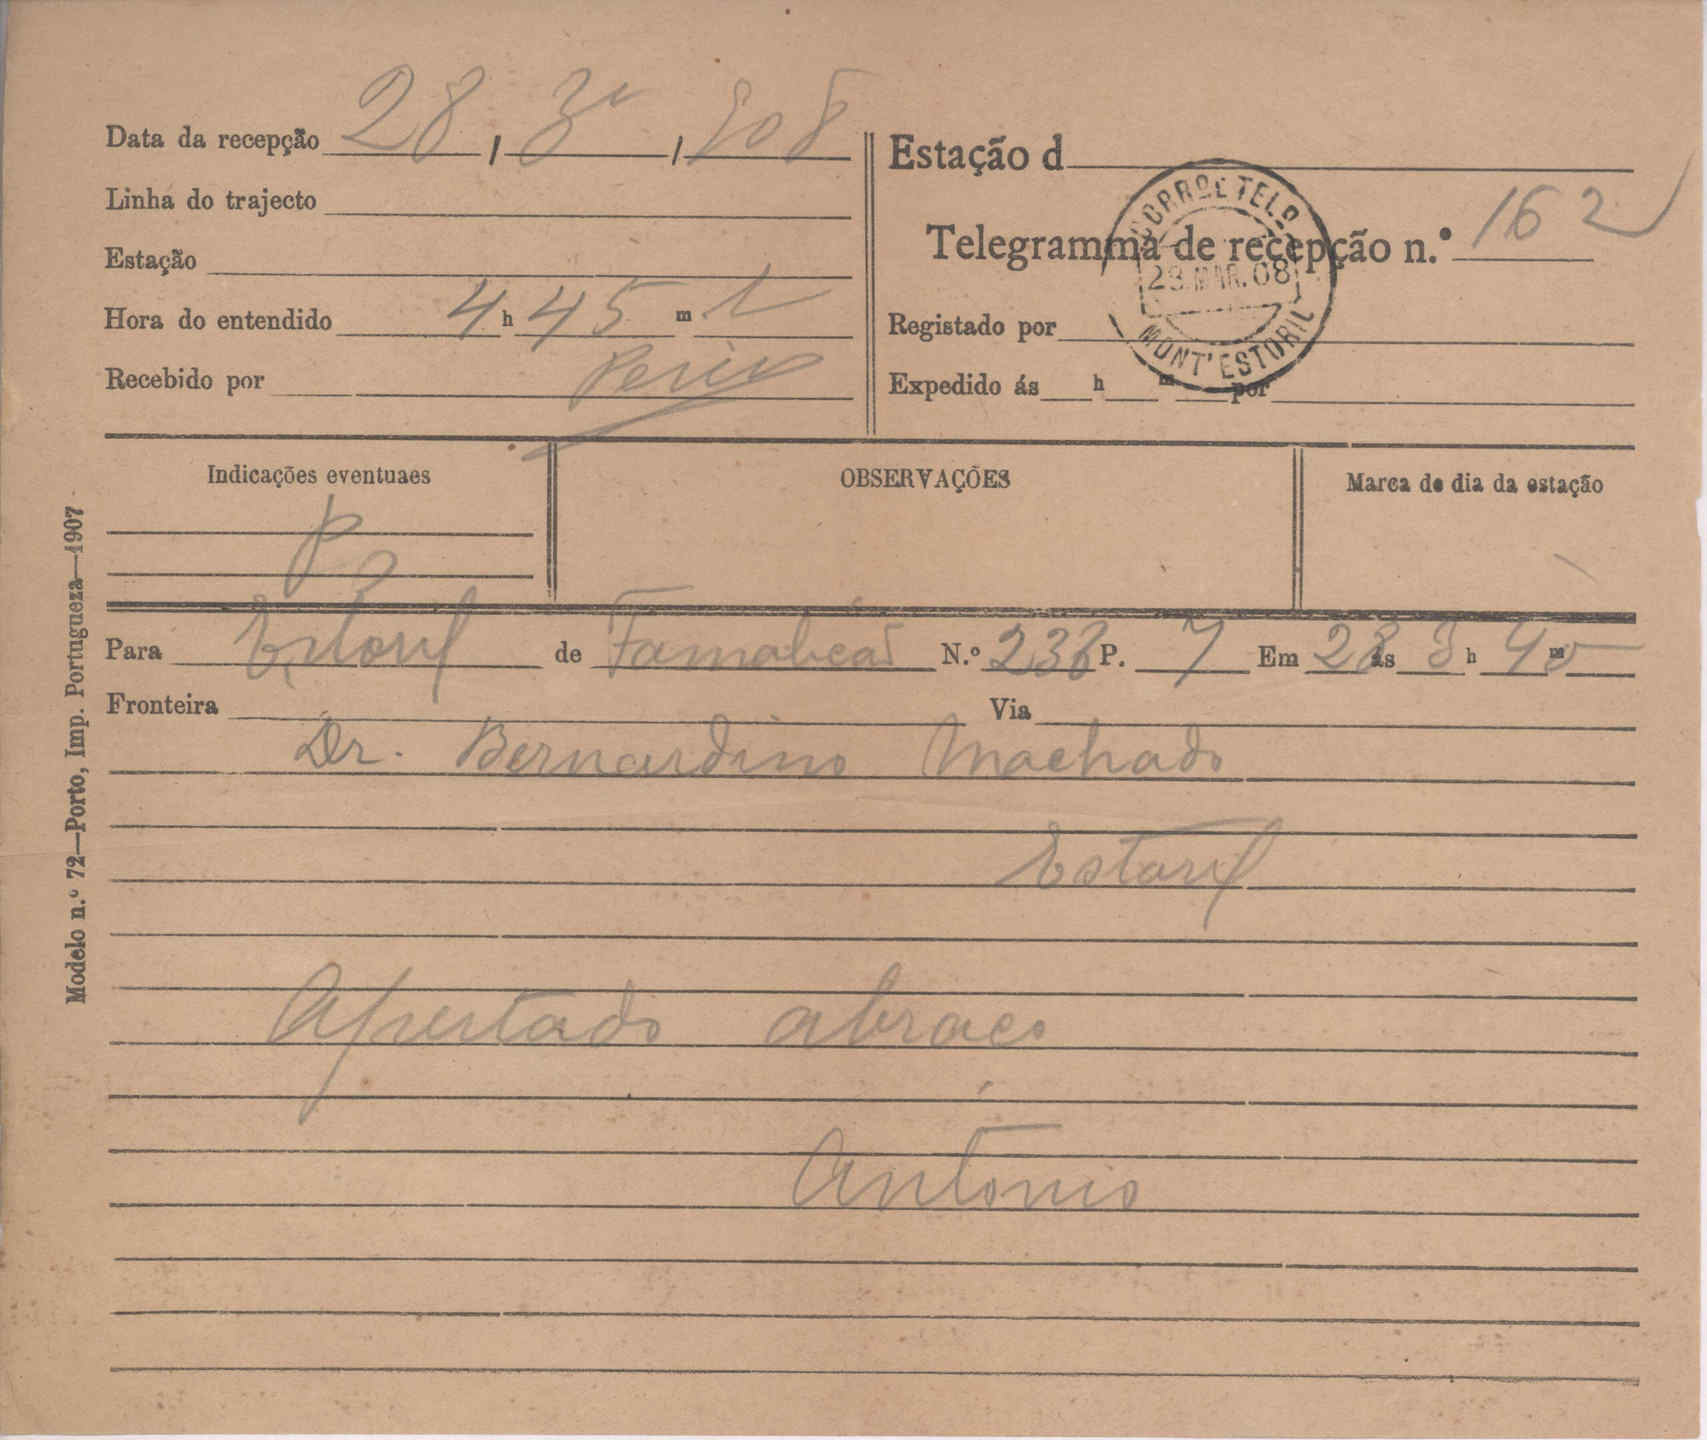 Data da recepção 28, 3, 908
Linha do trajecto
Estação
Hora do entendido 4 h 45 m t
Recebido por
Estação d
Telegramma de recepção n.º 162
CORR. E TELO
28 MAR. 08
MONT'ESTORIL
Registado por
Expedido ás h m por
Indicações eventuaes
P
OBSERVAÇÕES
Marca do dia da estação
Modelo n.º 72—Porto, Imp. Portugueza—1907
Para Estoril de Famalicão N.º 236 P. 7 Em 28 ás 3 h 40 m
Fronteira Via
Dr. Bernardino Machado
Estoril
Apertado abraço
António